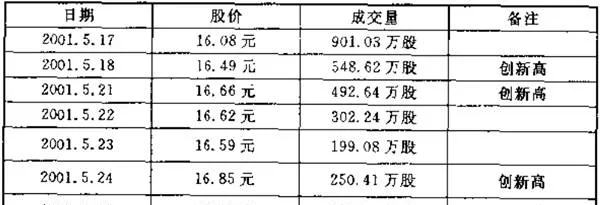 日期 股价 成交量 备注
2001.5.17 16.08元 901.03万股
2001.5.18 16.49元 548.62万股 创新高
2001.5.21 16.66元 492.64万股 创新高
2001.5.22 16.62元 302.24万股
2001.5.23 16.59元 199.08万股
2001.5.24 16.85元 250.41万股 创新高